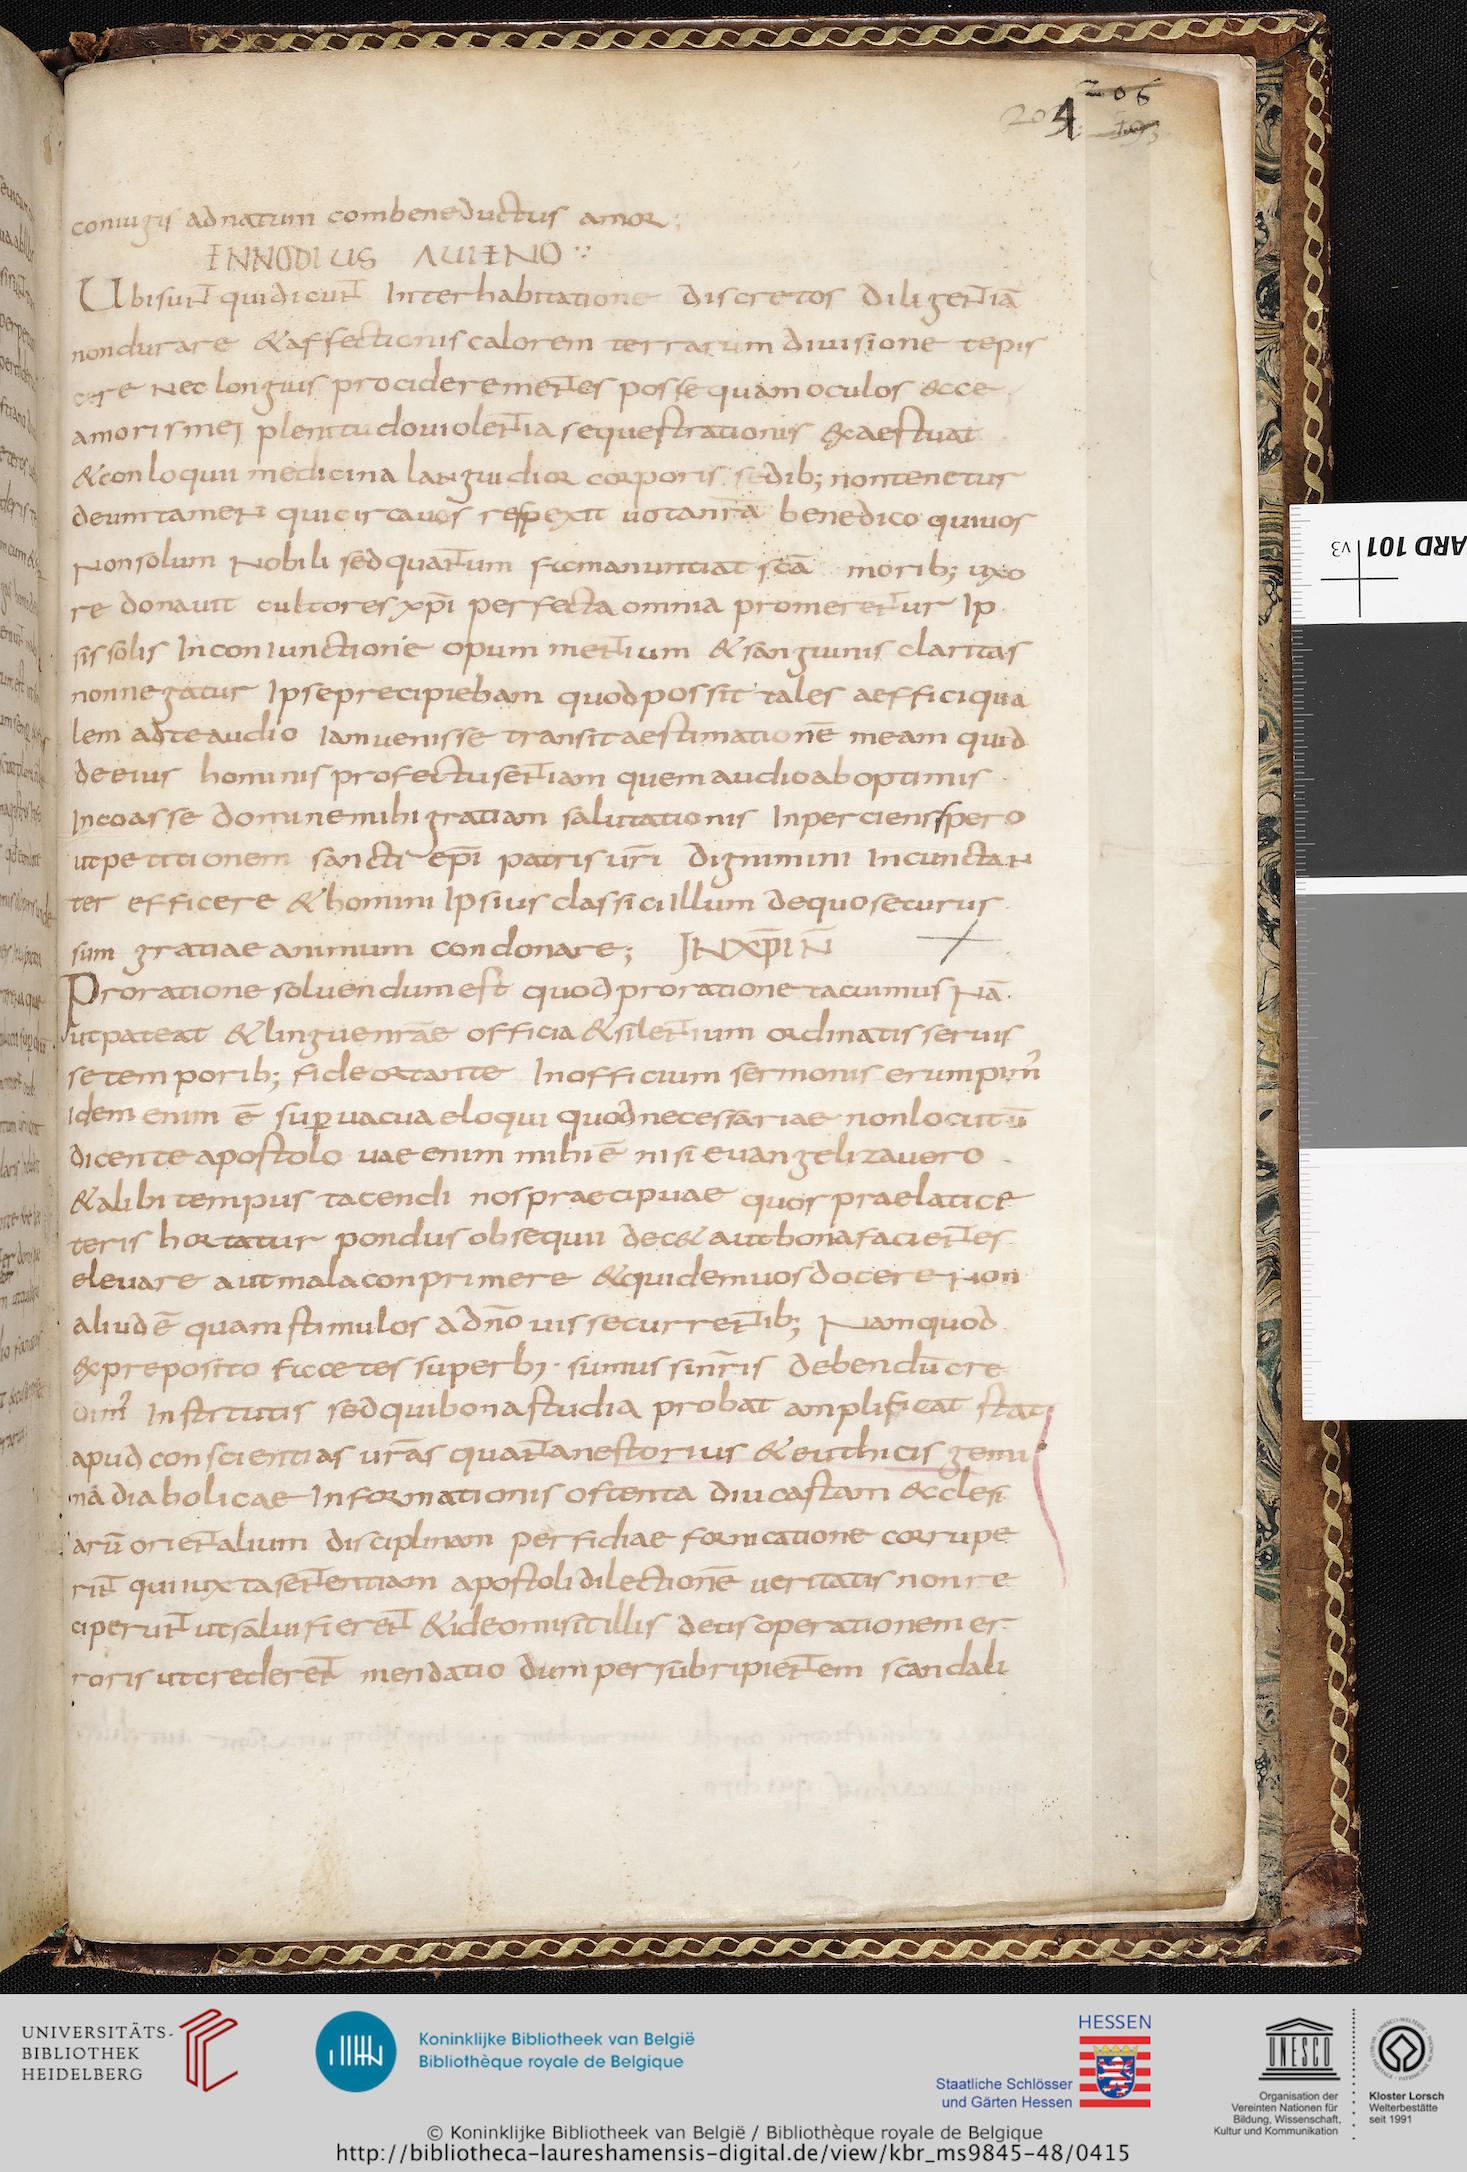 206
204
193
coniugis adnatum combene ductus amor;
INNODIUS AUIENO
Ubisunt quidicunt Interhabitatione discretos diligentiā
nondurare &affectionis calorem terrarum diuisione tepis
cere Nec longius prociderementes posse quam oculos ecce
amoris mei plenitudo uiolentia sequestrationis exaestuat
&conloquii medicina languidior corporis sedib; nontenetur
deum tamen qui circauos respexit uota nr̄a benedico quiuos
Nonsolum Nobili sed quantum ficmanuntiat scā morib; uxo
re donauit cultores xp̄i perfecta omnia promerentur Ip
sis solis Inconiunctione opum mentium &sanguinis claritas
nonnegatur Ipseprecipiebam quod possit tales aeffici qua
lem adteaudio Iamuenisse transit aestimationē meam quid
deeius hominis profectu sentiam quem audio aboptimis
Incoasse domine mihi gratiam salutationis Inperciens spero
utpetitionem sancti ep̄i patris ur̄i dignimini Incunctan
ter efficere &homini Ipsius classici Illum dequo securus
sum gratiae animum condonare; INXP̄I N̄
Proratione soluendum est quod proratione tacuimus Nā
ut pateat &linguenr̄ae officia &silentium ordinatis seruis
se temporib; fide ortante Inofficium sermonis erumpim'
idem enim ē sup̱uacua eloqui quod necessariae nonlocutū
dicente apostolo uae enim mihi ē nisi euangelizauero
&alibi tempus tacendi nos praecipuae quos praelatice
teris hortatur pondus obsequii dec& aut bona facientes
eleuare aut mala conprimere &quidem uos docere Non
aliud ē quam stimulos adn̄o uis securrentib; Namquod
expreposito ficcetes superbi sumus sinr̄is debendū cre
dim' Institutis sed qui bona studia probat amplificat stat
apud conscientias ur̄as quanta nestorius &euthicis gemi
na diabolicae Informationis ostenta diu castam ecclesi
arū orientalium disciplinam perfidiae fornicatione corrupe
rint quiiuxta sententiam apostoli dilectionē ueritatis nonre
ciperunt ut salui fierent &ideo misit illis deus operationem er
roris utcrederent mendatio dum persubripientem scandali
ARD 101 v3
UNIVERSITÄTS-
BIBLIOTHEK
HEIDELBERG
Koninklijke Bibliotheek van België
Bibliothèque royale de Belgique
HESSEN
Staatliche Schlösser
und Gärten Hessen
UNESCO
Organisation der
Vereinten Nationen für
Bildung, Wissenschaft,
Kultur und Kommunikation
Kloster Lorsch
Welterbestätte
seit 1991
© Koninklijke Bibliotheek van België / Bibliothèque royale de Belgique
http://bibliotheca-laureshamensis-digital.de/view/kbr_ms9845-48/0415